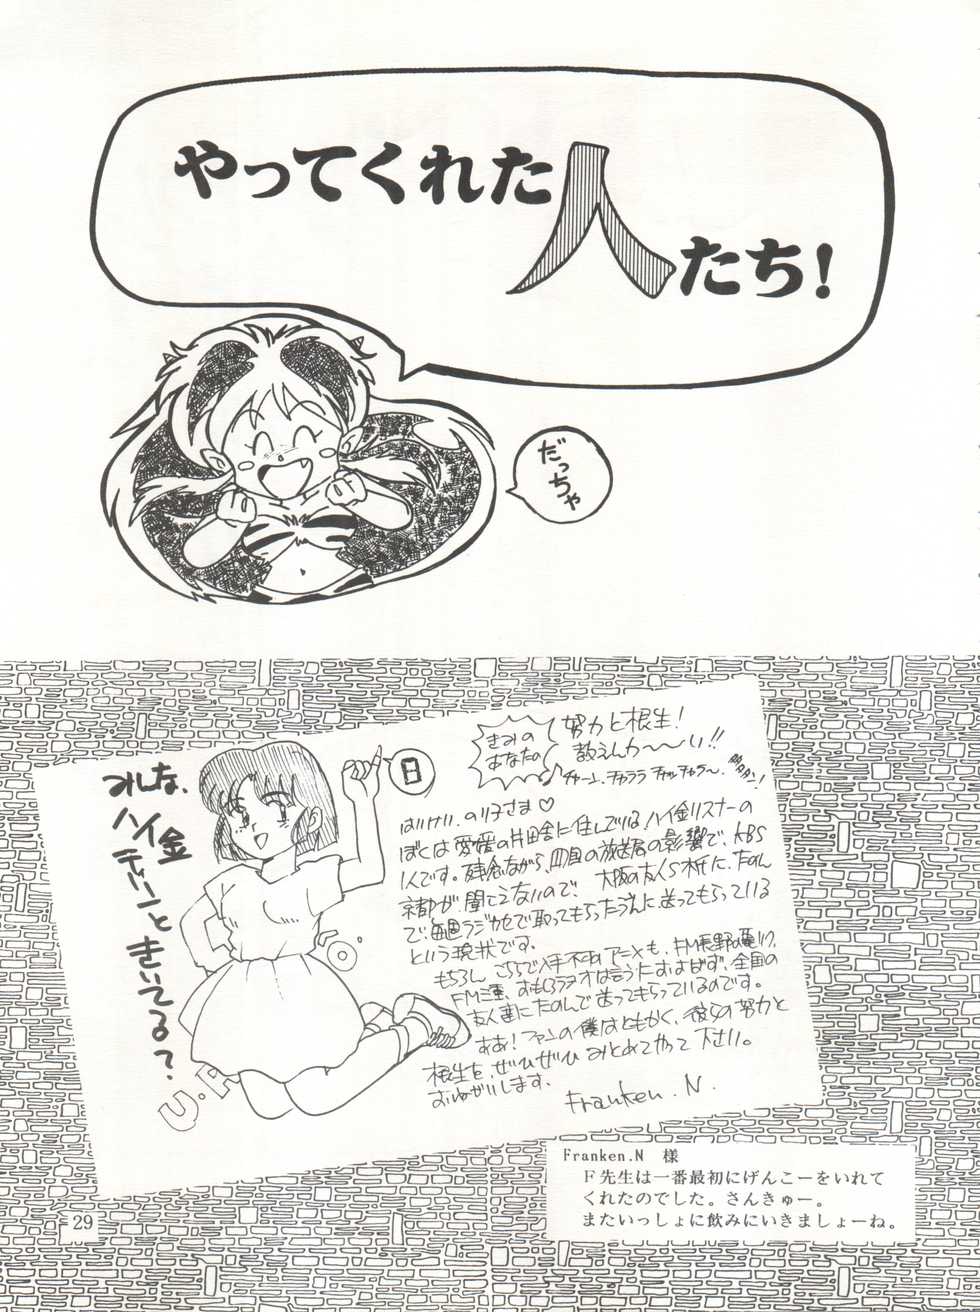 やってくれた人たち!
だっちゃ
みんな、
ハイ金
チャーンと
きいてる?
日
きみの
あなたの
努力と根性!
教えんカ〜〜い!!
チャーン、チャララ チャッチャラ〜、
はいけい、のり子さま♡
ぼくは愛媛の片田舎に住んでいる、ハイ金リスナーの
1人です。残念ながら、四国の放送局の影響で、KBS
京都が聞こえないので、大阪の友人S木斤に、たのん
で、毎週ラジカセで取ってもらったうえに送ってもらっている
という現状です。
もちろん、こちらで入手不可のアニメも、FM長野の
FM三重、おもしろラジオは言うにおよばず、全国の
友人達にたのんで送ってもらっているのです。
ああ!ファンの僕はともかく、彼らの努力と
根生を、ぜひぜひ みとめてやって下さい。
おねがいします。
Franken.N
U.F.O.
Franken.N 様
F先生は一番最初にげんこーをいれて
くれたのでした。さんきゅー。
またいっしょに飲みにいきましょーね。
29